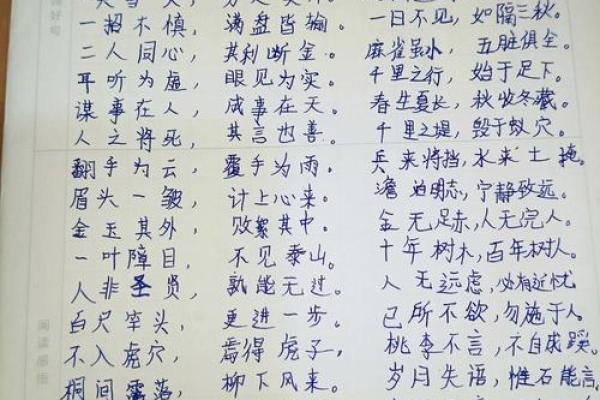 好句
一招不慎，满盘皆输。 一日不见，如隔三秋。
二人同心，其利断金。 麻雀虽小，五脏俱全。
耳听为虚，眼见为实。 千里之行，始于足下。
谋事在人，成事在天。 春生夏长，秋收冬藏。
人之将死，其言也善。 千里之堤，毁于蚁穴。
翻手为云，覆手为雨。 兵来将挡，水来土掩。
眉头一皱，计上心来。 澹泊明志，宁静致远。
金玉其外，败絮其中。 金无足赤，人无完人。
一叶障目，不见泰山。 十年树木，百年树人。
人非圣贤，孰能无过。 人无远虑，必有近忧
百尺竿头，更进一步。 己所不欲，勿施于人。
不入虎穴，焉得虎子。 桃李不言，不自成蹊。
桐间露落，柳下风来。 岁月失语，惟石能言。
阅读感悟